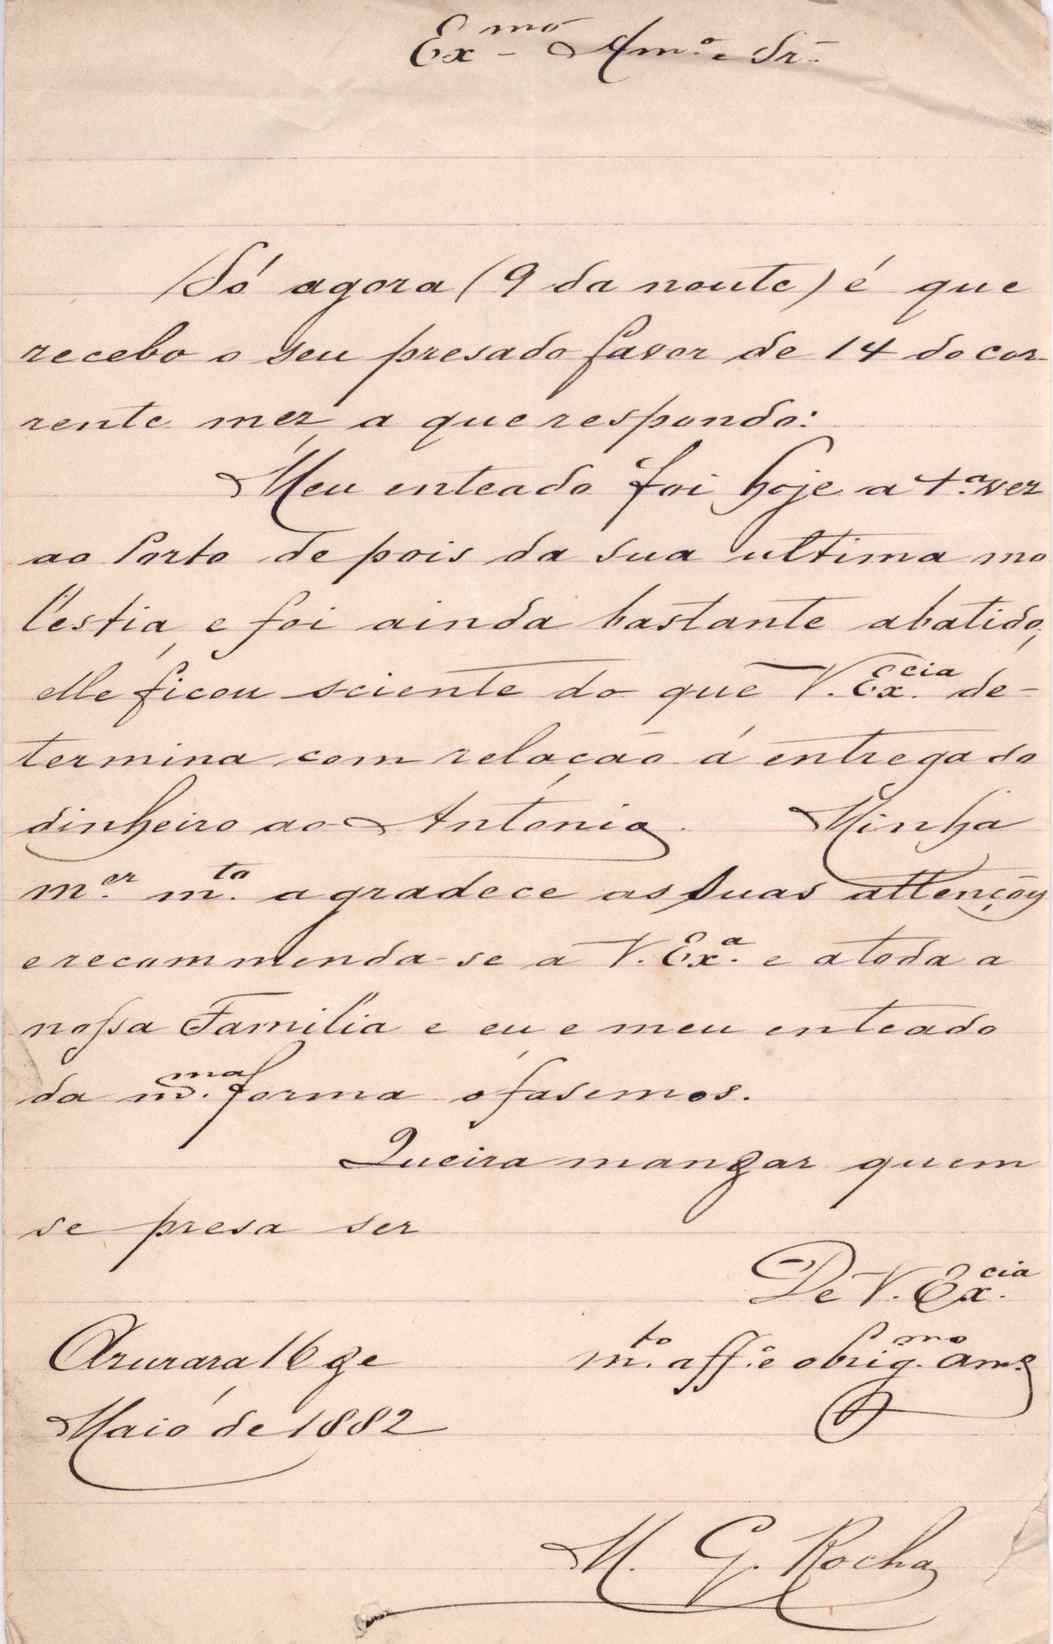 Ex.mo Am.o e Sr.
Só agora (9 da noute) é que
recebo o seu presado favor de 14 do cor-
rente mez, a que respondo:
Meu enteado foi hoje a 1.a vez
ao Porto depois da sua ultima mo
lestia, e foi ainda bastante abatido;
elle ficou sciente do que V. Ex.cia de-
termina com relação á entrega do
dinheiro ao Antonio. Minha
m.er m.to agradece as suas attenções
e recommenda-se a V. Ex.a e a toda a
nossa Familia e eu e meu enteado
da m.ma forma o fasemos.
Queira mandar quem
se presa ser
De V. Ex.cia
Azurara 16 de m.to aff.e obrig.mo am.o
Maio de 1882
M. G. Rocha